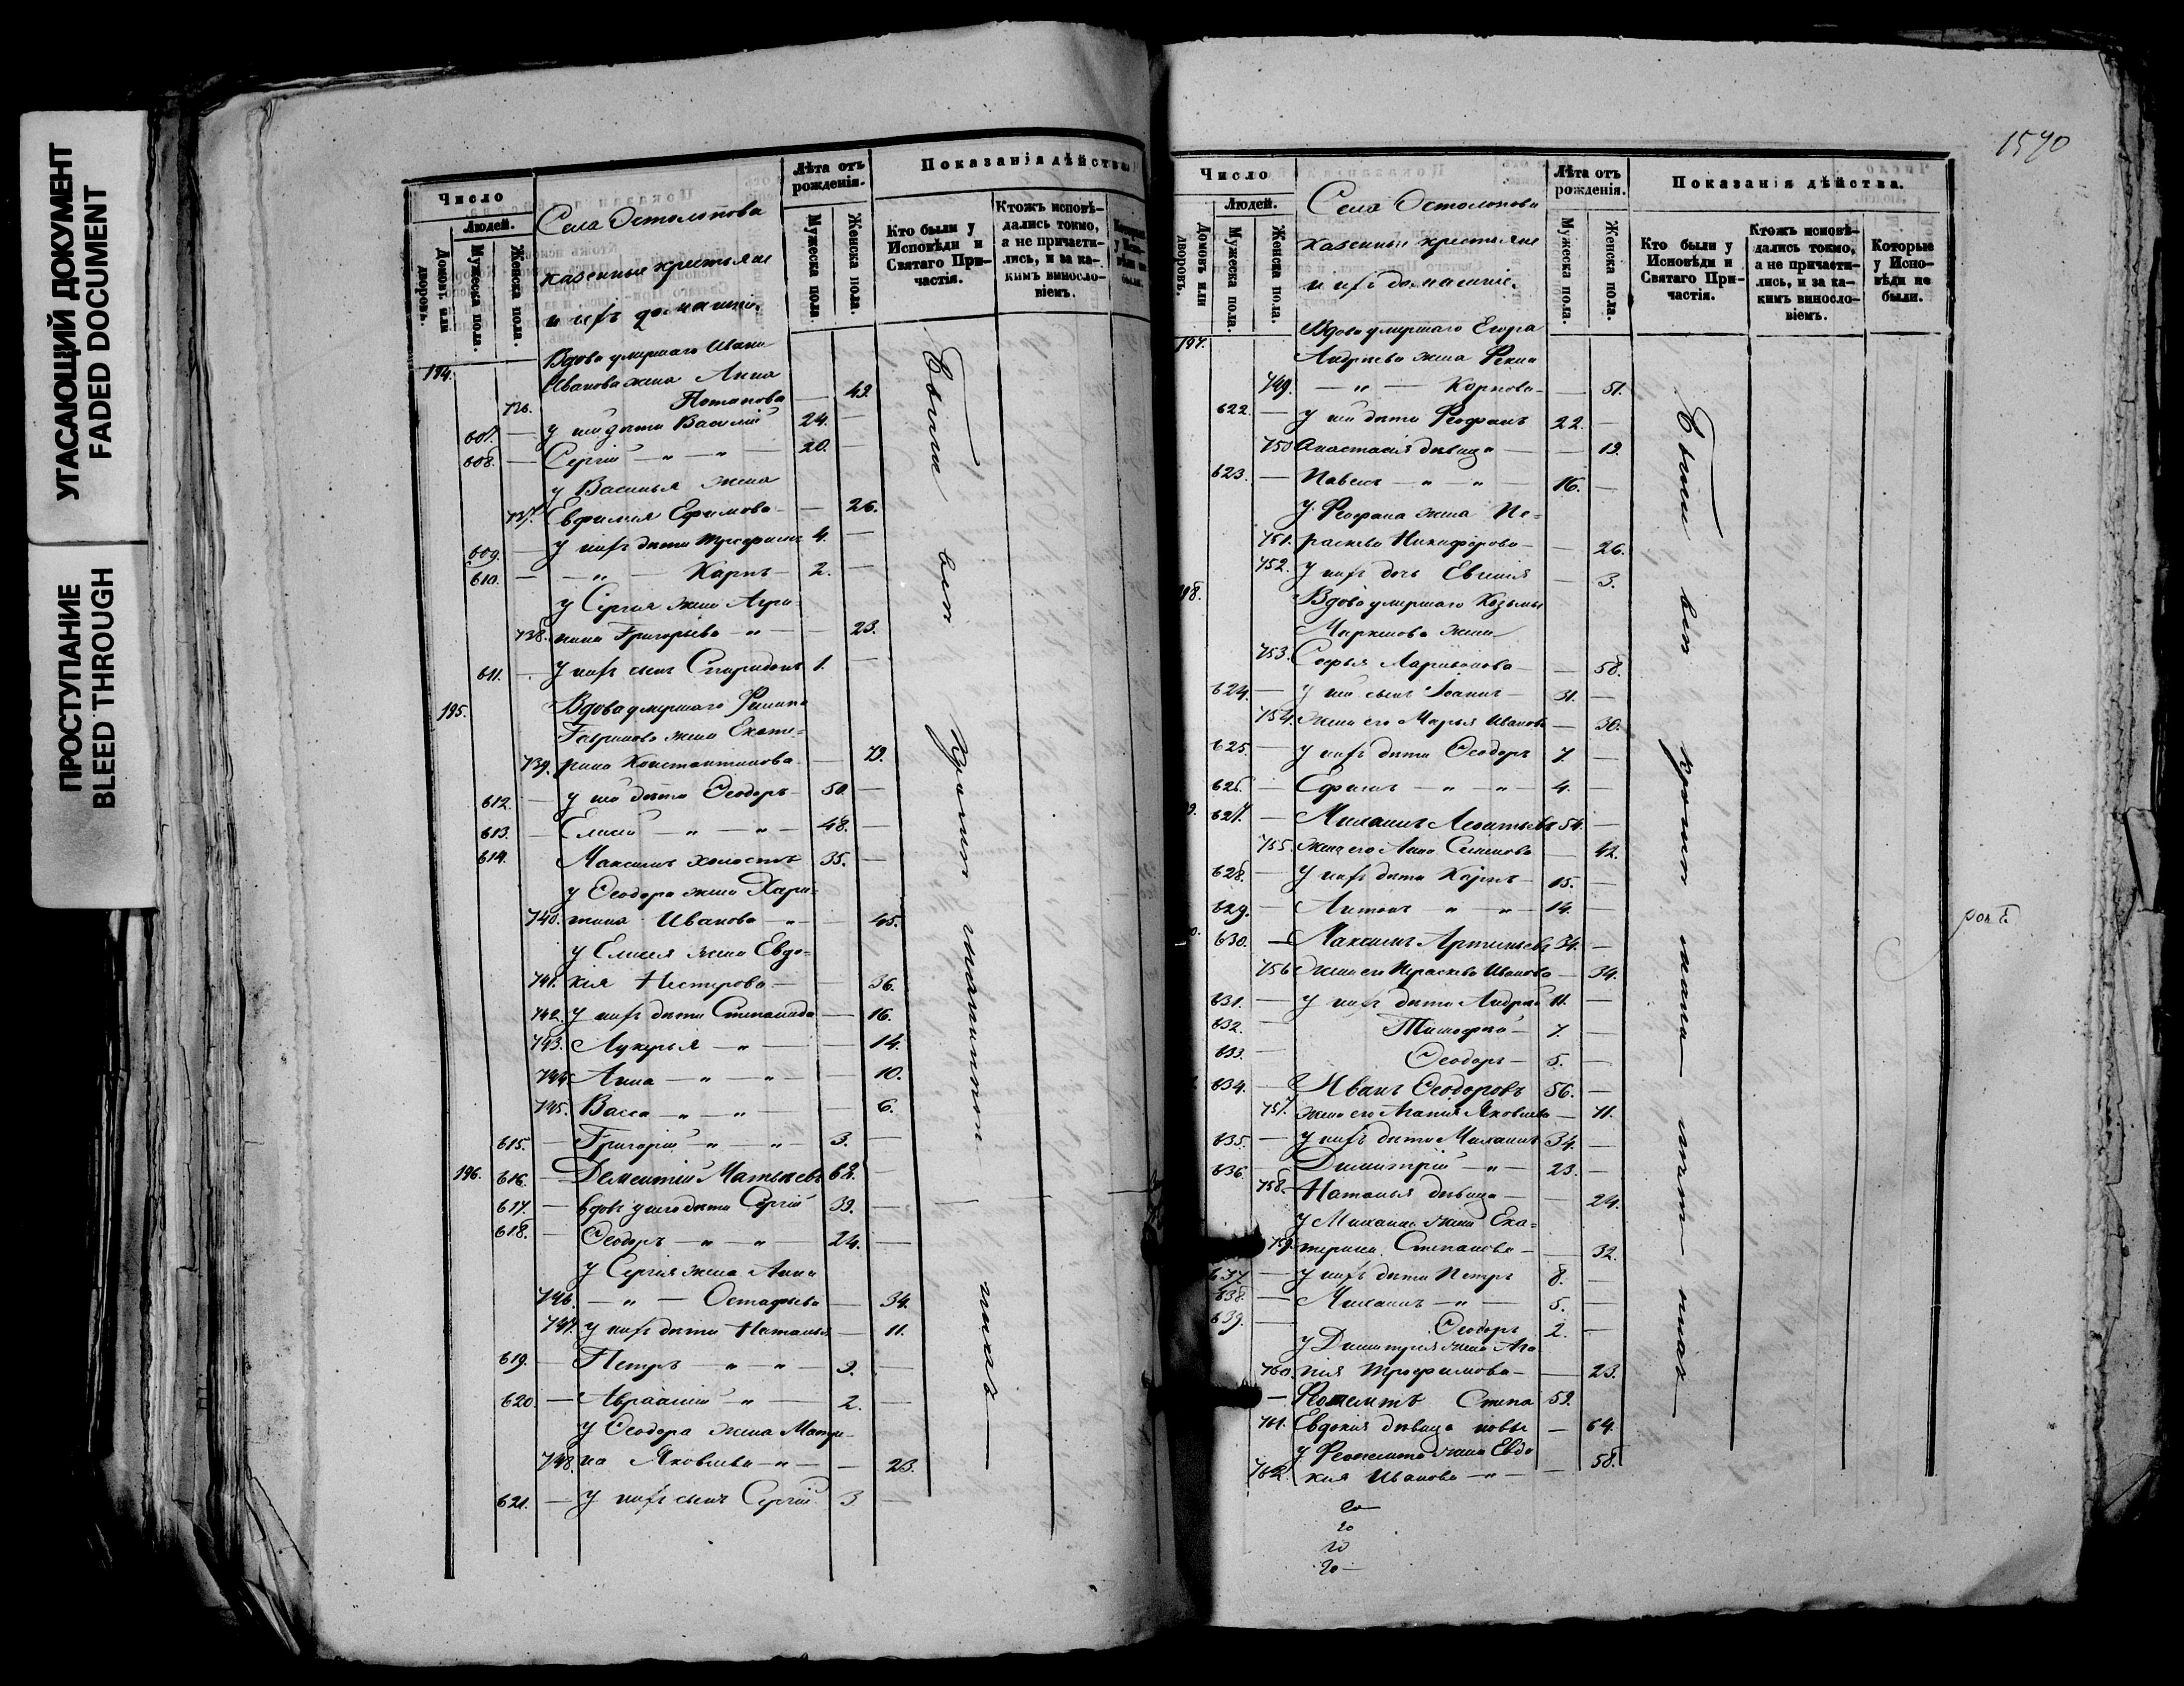 УГАСАЮЩИЙ ДОКУМЕНТ
FADED DOCUMENT
ПРОСТУПАНИЕ
BLEED THROUGH
Число
Людей.
Домовъ или дворовъ.
Мужеска пола.
Женска пола.
Села Остолопова
казенные крестьяне
и ихъ домашніе.
Лѣта отъ рожденія.
Мужеска пола.
Женска пола.
Показанія дѣйства
Кто были у Исповѣди и Святаго При-
частія.
Ктожъ исповѣ-
дались токмо,
а не причасти-
лись, и за ка-
кимъ винослo-
віемъ.
194. Вдова умершаго Ивана
Иванова жена Анна
736. Потапова — 49.
607. — у ней дѣти Василій 24. —
608. — Сергій — „ — „ — 20. —
у Василья жена
737. Евфимия Ефимова — — 26.
609. — У нихъ дѣти Трофимъ 4. —
610. — — „ — Карпъ — 2. —
у Сергия жена Агри-
738. пина Григорьева — „ — — 23.
611. — у нихъ сынъ Спиридонъ 1. —
195. Вдова умершаго Филипа
Гаврилова жена Екате-
739. рина Константинова — 73.
612. — у ней дѣти Ѳеодоръ 50. —
613. — Елисей — „ — „ — 48. —
614. Максимъ холостъ 35. —
у Ѳеодора жена Хари-
740. тина Иванова — „ — 45.
у Елисея жена Евдо-
741. кия Нестерова — — 36.
742. У нихъ дѣти Степанида — 16.
743. Лукерья — „ — — 14.
744. Анна — „ — „ — — 10.
745. Васса — „ — „ — — 6.
615. — Григорій — „ — „ — 3. —
196. 616. — Дементій Матвѣевъ 62. —
617. — вдовъ у него дѣти Сергій 39. —
618. — Ѳеодоръ — „ — „ — 24. —
у Сергия жена Анна
746. — „ — Остафьева — 34.
747. У нихъ дѣти Наталья — 11.
619. — Петръ „ — „ — 9. —
620. — Аврамій — „ — 2. —
у Ѳеодора жена Матре-
748. на Яковлева — „ — — 23.
621. — У нихъ сынъ Сергій 3 —
Были вси
1570
Число
Людей.
Домовъ или дворовъ.
Мужеска пола.
Женска пола.
Села Остолопова
казенные крестьяне
и ихъ домашніе.
Лѣта отъ рожденія.
Мужеска пола.
Женска пола.
Показанія дѣйства.
Кто были у Исповѣди и Святаго При-
частія.
Ктожъ исповѣ-
дались токмо,
а не причасти-
лись, и за ка-
кимъ винослo-
віемъ.
Которые у Испо-
вѣди не были.
197. Вдова умершаго Егора
Андреева жена Фекла
749. — „ — Карпова — — 51.
622. — у ней дѣти Феофанъ 22. —
750 Анастасія дѣвица — — 19.
623. — Павелъ — „ — „ — 16. —
У Феофана жена Пе-
751. раскева Никифорова — — 26.
752. У нихъ дочь Евгения — 3.
198. Вдова умершаго Козьмы
Маркелова жена
753. Софья Ларивонова — — 58.
624. — У ней сынъ Іоаннъ — 31. —
754. жена его Марья Иванова — 30.
625. — у нихъ дѣти Ѳеодоръ 7. —
626. — Ефимъ — „ — „ — 4. —
627. — Михаилъ Леонтьевъ 54. —
755. жена его Анна Семенова — 42.
628. — У нихъ дѣти Карпъ — 15. —
629. — Антонъ „ — „ — 14. —
630. — Максимъ Артемьевъ 34. —
756. Жена его Праскева Иванова — 34.
631. — у нихъ дѣти Андрей 11. —
632. — Тимофей — 7. —
633. — Ѳеодоръ — 5. —
634. — Иванъ Ѳеодоровъ 56. —
757. жена его Агапия Яковлева — 71.
635. — у нихъ дѣти Михаилъ 34. —
636. — Димитрій — „ — 23. —
758. Наталья дѣвица — — 24.
у Михаила жена Ека-
759. терина Степанова — — 32.
637. — У нихъ дѣти Петръ 8. —
638. — Михаилъ — „ — 5. —
639. — Ѳеодоръ 2. —
у Димитрия жена Ага-
760. пия Трофимова — — 23.
— Феопемптъ Степа 59.
761. Евдокия дѣвица новы — 64.
у Феопемпта жена Евдо
762. кия Иванова — „ — — 58.
Были вси
20
20
20
20